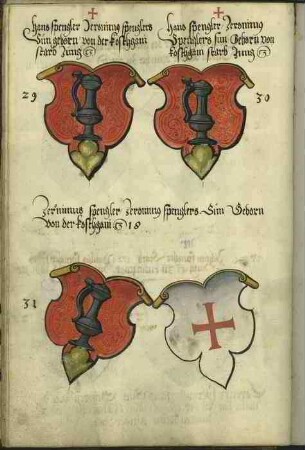 Hans spengler Jeronimus spenglers
Sun geborn von der kostzgain
starb Jung
29
Hans spengler Jeronimus
Spenglers sun Geborn von
kostzgain starb Jung
30
Jeronimus spengler Jeronimus spenglers Sun Geborn
von der kostzgain 18
31